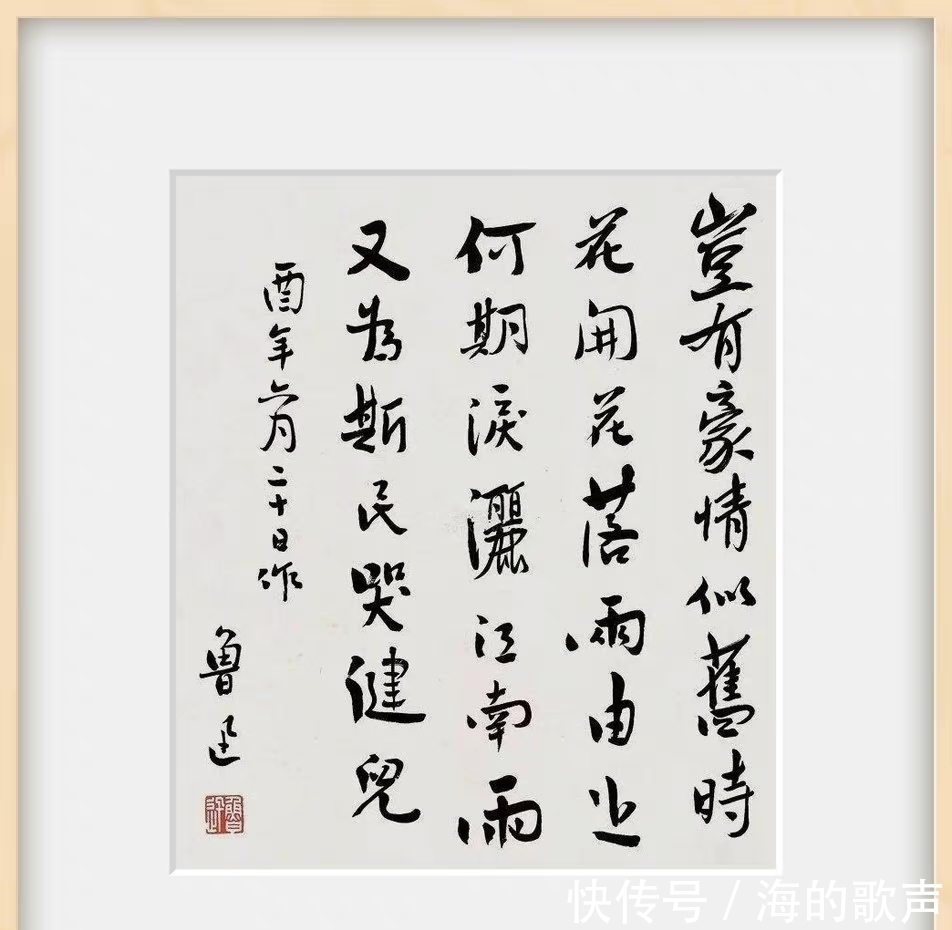 豈有豪情似舊時
花開花落兩由之
何期淚灑江南雨
又為斯民哭健兒
酉年六月二十日作
魯迅
快传号 / 海的歌声